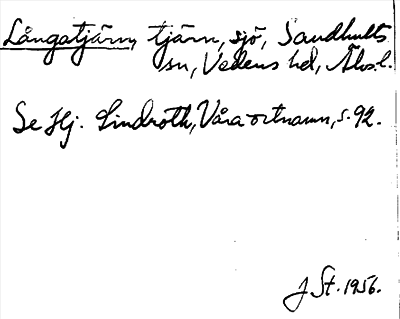 Långatjärn, tjärn, sjö, Sandhults
sn, Vedens hd, Älvsb.l.
Se Hj. Lindroth, Våra ortnamn, s. 92.
J St. 1956.